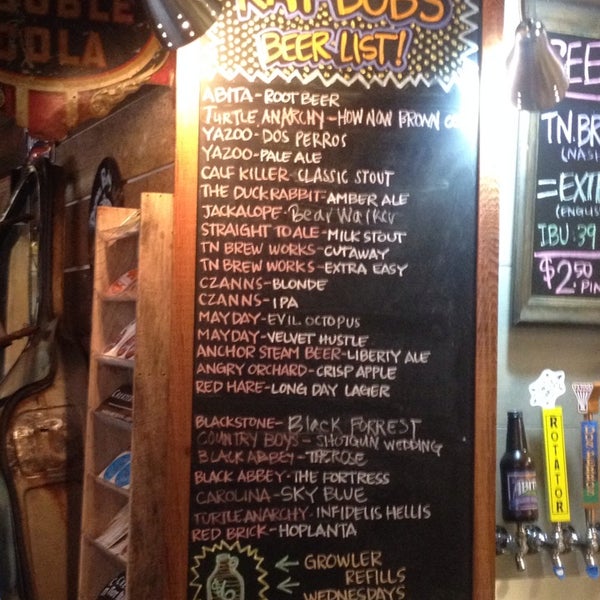 OUBLE
COLA
RAY BOB'S
BEER LIST!
ABITA-ROOT BEER
TURTLE ANARCHY-HOW NOW BROWN
YAZOO-DOS PERROS
YAZOO-PALE ALE
CALF KILLER-CLASSIC STOUT
THE DUCKRABBIT-AMBER ALE
JACKALOPE-Bear Walker
STRAIGHT TO ALE-MILK STOUT
TN BREW WORKS-CUTAWAY
TN BREW WORKS-EXTRA EASY
CZANNS-BLONDE
CZANNS-IPA
MAYDAY-EVIL OCTOPUS
MAYDAY-VELVET HUSTLE
ANCHOR STEAM BEER-LIBERTY ALE
ANGRY ORCHARD-CRISP APPLE
RED HARE-LONG DAY LAGER
BLACKSTONE-BLACK FORREST
COUNTRY BOYS-SHOTGUN WEDDING
BLACK ABBEY-THE ROSE
BLACK ABBEY-THE FORTRESS
CAROLINA-SKY BLUE
TURTLE ANARCHY-INFIDELIS HELLIS
RED BRICK-HOPLANTA
$6
GROWLER
REFILLS
WEDNESDAYS
BEE
TN.BR
(NASH
=EXTR
(ENGLIS
IBU.39
$2.50
PIN
ABITA
ROTATOR
DOS PERROS